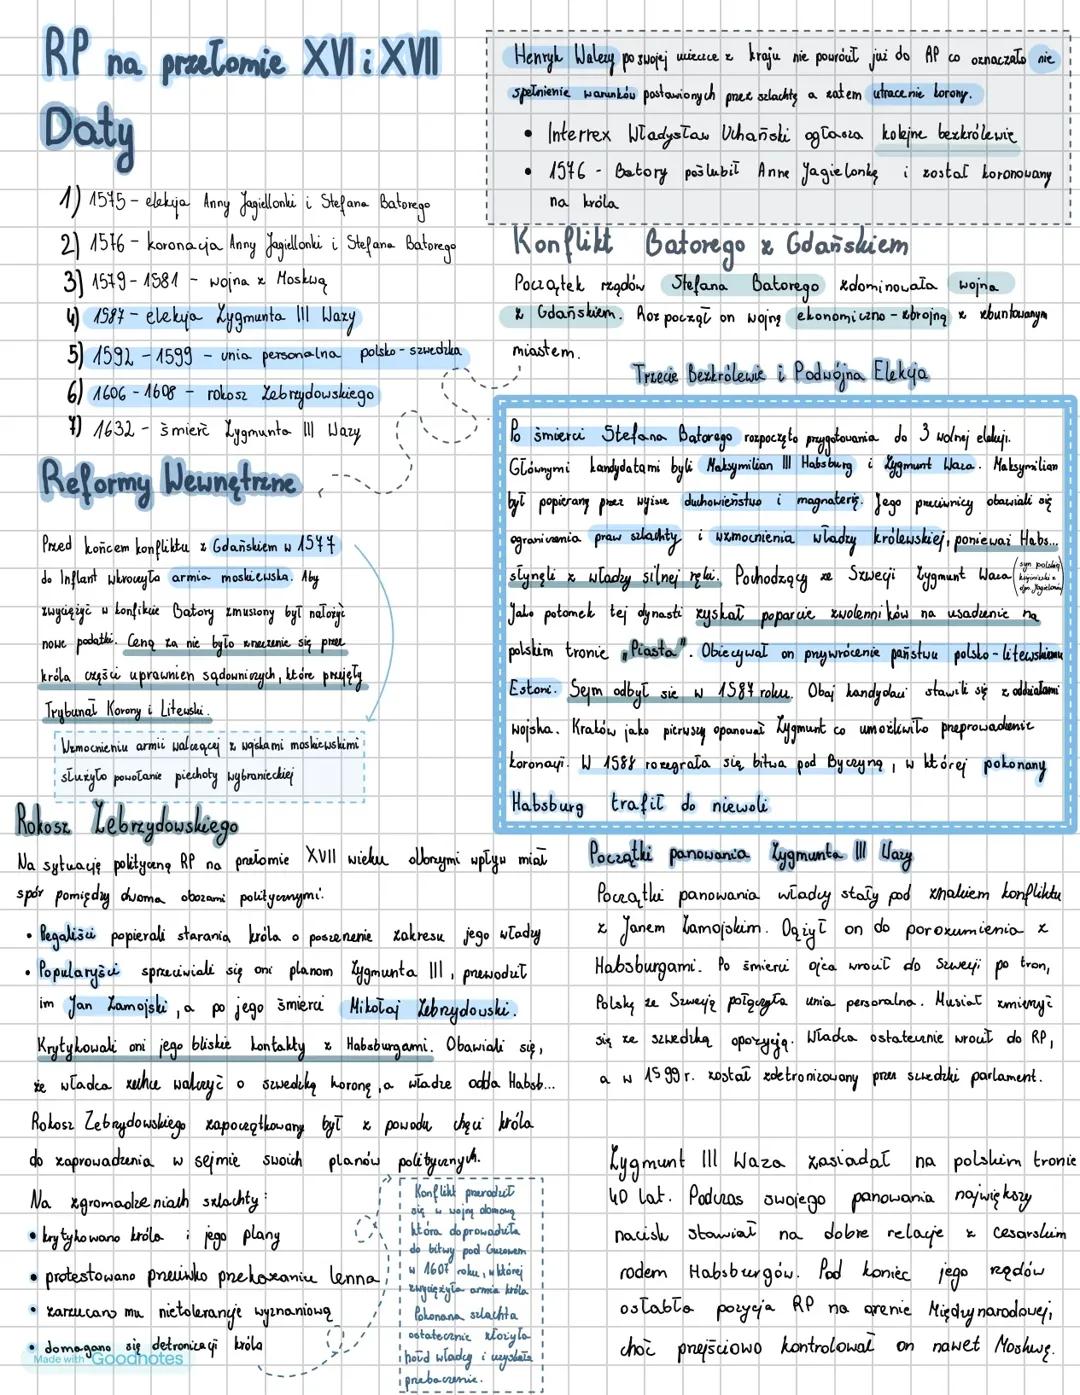 RP na przełomie XVI i XVII
Daty
1) 1575 – elekcja Anny Jagiellonki i Stefana Batorego
2) 1576 – koronacja Anny Jagiellonki i Stefana Batorego
3) 1579 – 1581 – wojna z Moskwą
4) 1587 – elekcja Zygmunta III Wazy
5) 1592 – 1599 – unia personalna polsko – szwedzka
6) 1606 – 1608 – rokosz Zebrzydowskiego
7) 1632 – śmierć Zygmunta III Wazy
Reformy Wewnętrzne
Przed końcem konfliktu z Gdańskiem w 1577
do Inflant wkroczyła armia moskiewska. Aby
zwyciężyć w konflikcie Batory zmuszony był nałożyć
nowe podatki. Ceną za nie było zrzeczenie się przez
króla części uprawnien sądowniczych, które przejęły
Trybunał Korony i Litewski.
Wzmocnieniu armii walczącej z wojskami moskiewskimi
służyło powołanie piechoty wybranieckiej
Henryk Walezy po swojej ucieczce z kraju nie powrócił już do RP co oznaczało nie
spełnienie warunków postawionych przez szlachtę a zatem utracenie korony.
• Interrex Władysław Uchański ogłasza kolejne bezkrólewie
• 1576 – Batory poślubił Anne Jagielonkę i został koronowany
na króla
Konflikt Batorego z Gdańskiem
Początek rządów Stefana Batorego zdominowała wojna
z Gdańskiem. Rozpoczął on wojnę ekonomiczno – zbrojną z zbuntowanym
miastem.
Trzecie Bezkrólewie i Podwójna Elekcja
Po śmierci Stefana Batorego rozpoczęto przygotowania do 3 wolnej elekcji.
Głównymi kandydatami byli Maksymilian III Habsburg i Zygmunt Waza. Maksymilian
był popierany przez wyższe duchowieństwo i magnaterię. Jego przeciwnicy obawiali się
ograniczenia praw szlachty i wzmocnienia władzy królewskiej, ponieważ Habs...
słynęli z władzy silnej ręki. Pochodzący ze Szwecji Zygmunt Waza (syn polskiej księżniczki z dyn. Jagielonów)
Jako potomek tej dynasti zyskał poparcie zwolenników na usadzenie na
polskim tronie „Piasta". Obiecywał on przywrócenie państwu polsko – litewskiemu
Estoni. Sejm odbył się w 1587 roku. Obaj kandydaci stawili się z oddziałami
wojska. Kraków jako pierwszy opanował Zygmunt co umożliwiło przeprowadzenie
koronacji. W 1588 rozegrała się bitwa pod Byczyną, w której pokonany
Habsburg trafił do niewoli
Rokosz Zebrzydowskiego
Na sytuację polityczną RP na przełomie XVII wieku olbrzymi wpływ miał
spór pomiędzy dwoma obozami politycznymi:
• Regaliści popierali starania króla o poszerzenie zakresu jego władzy
• Popularyści sprzeciwiali się oni planom Zygmunta III, przewodził
im Jan Zamojski, a po jego śmierci Mikołaj Zebrzydowski.
Krytykowali oni jego bliskie kontakty z Habsburgami. Obawiali się,
że władca zechce walczyć o szwedzką koronę, a władze odda Habsb...
Rokosz Zebrzydowskiego zapoczątkowany był z powodu chęci króla
do zaprowadzenia w sejmie swoich planów politycznych.
Na zgromadzeniach szlachty:
• krytykowano króla i jego plany
• protestowano przeciwko przekazaniu lenna
• zarzucano mu nietolerancje wyznaniową
• domagano się detronizacji króla
Konflikt przerodził
się w wojnę domową
która doprowadziła
do bitwy pod Guzowem
w 1607 roku, w której
zwyciężyła armia króla
Pokonana szlachta
ostatecznie złożyła
hołd władcy i uzyskała
przebaczenie.
Początki panowania Zygmunta III Wazy
Początki panowania władcy stały pod znakiem konfliktu
z Janem Zamojskim. Dążył on do porozumienia z
Habsburgami. Po śmierci ojca wrócił do Szwecji po tron,
Polskę ze Szwecją połączyła unia personalna. Musiał zmierzyć
się ze szwedzką opozycją. Władca ostatecznie wrócił do RP,
a w 1599 r. został zdetronizowany przez szwedzki parlament.
Zygmunt III Waza zasiadał na polskim tronie
40 lat. Podczas swojego panowania największy
nacisk stawiał na dobre relacje z cesarskim
rodem Habsburgów. Pod koniec jego rządów
osłabła pozycja RP na arenie Międzynarodowej,
choć przejściowo kontrolował on nawet Moskwę.
Made with Goodnotes